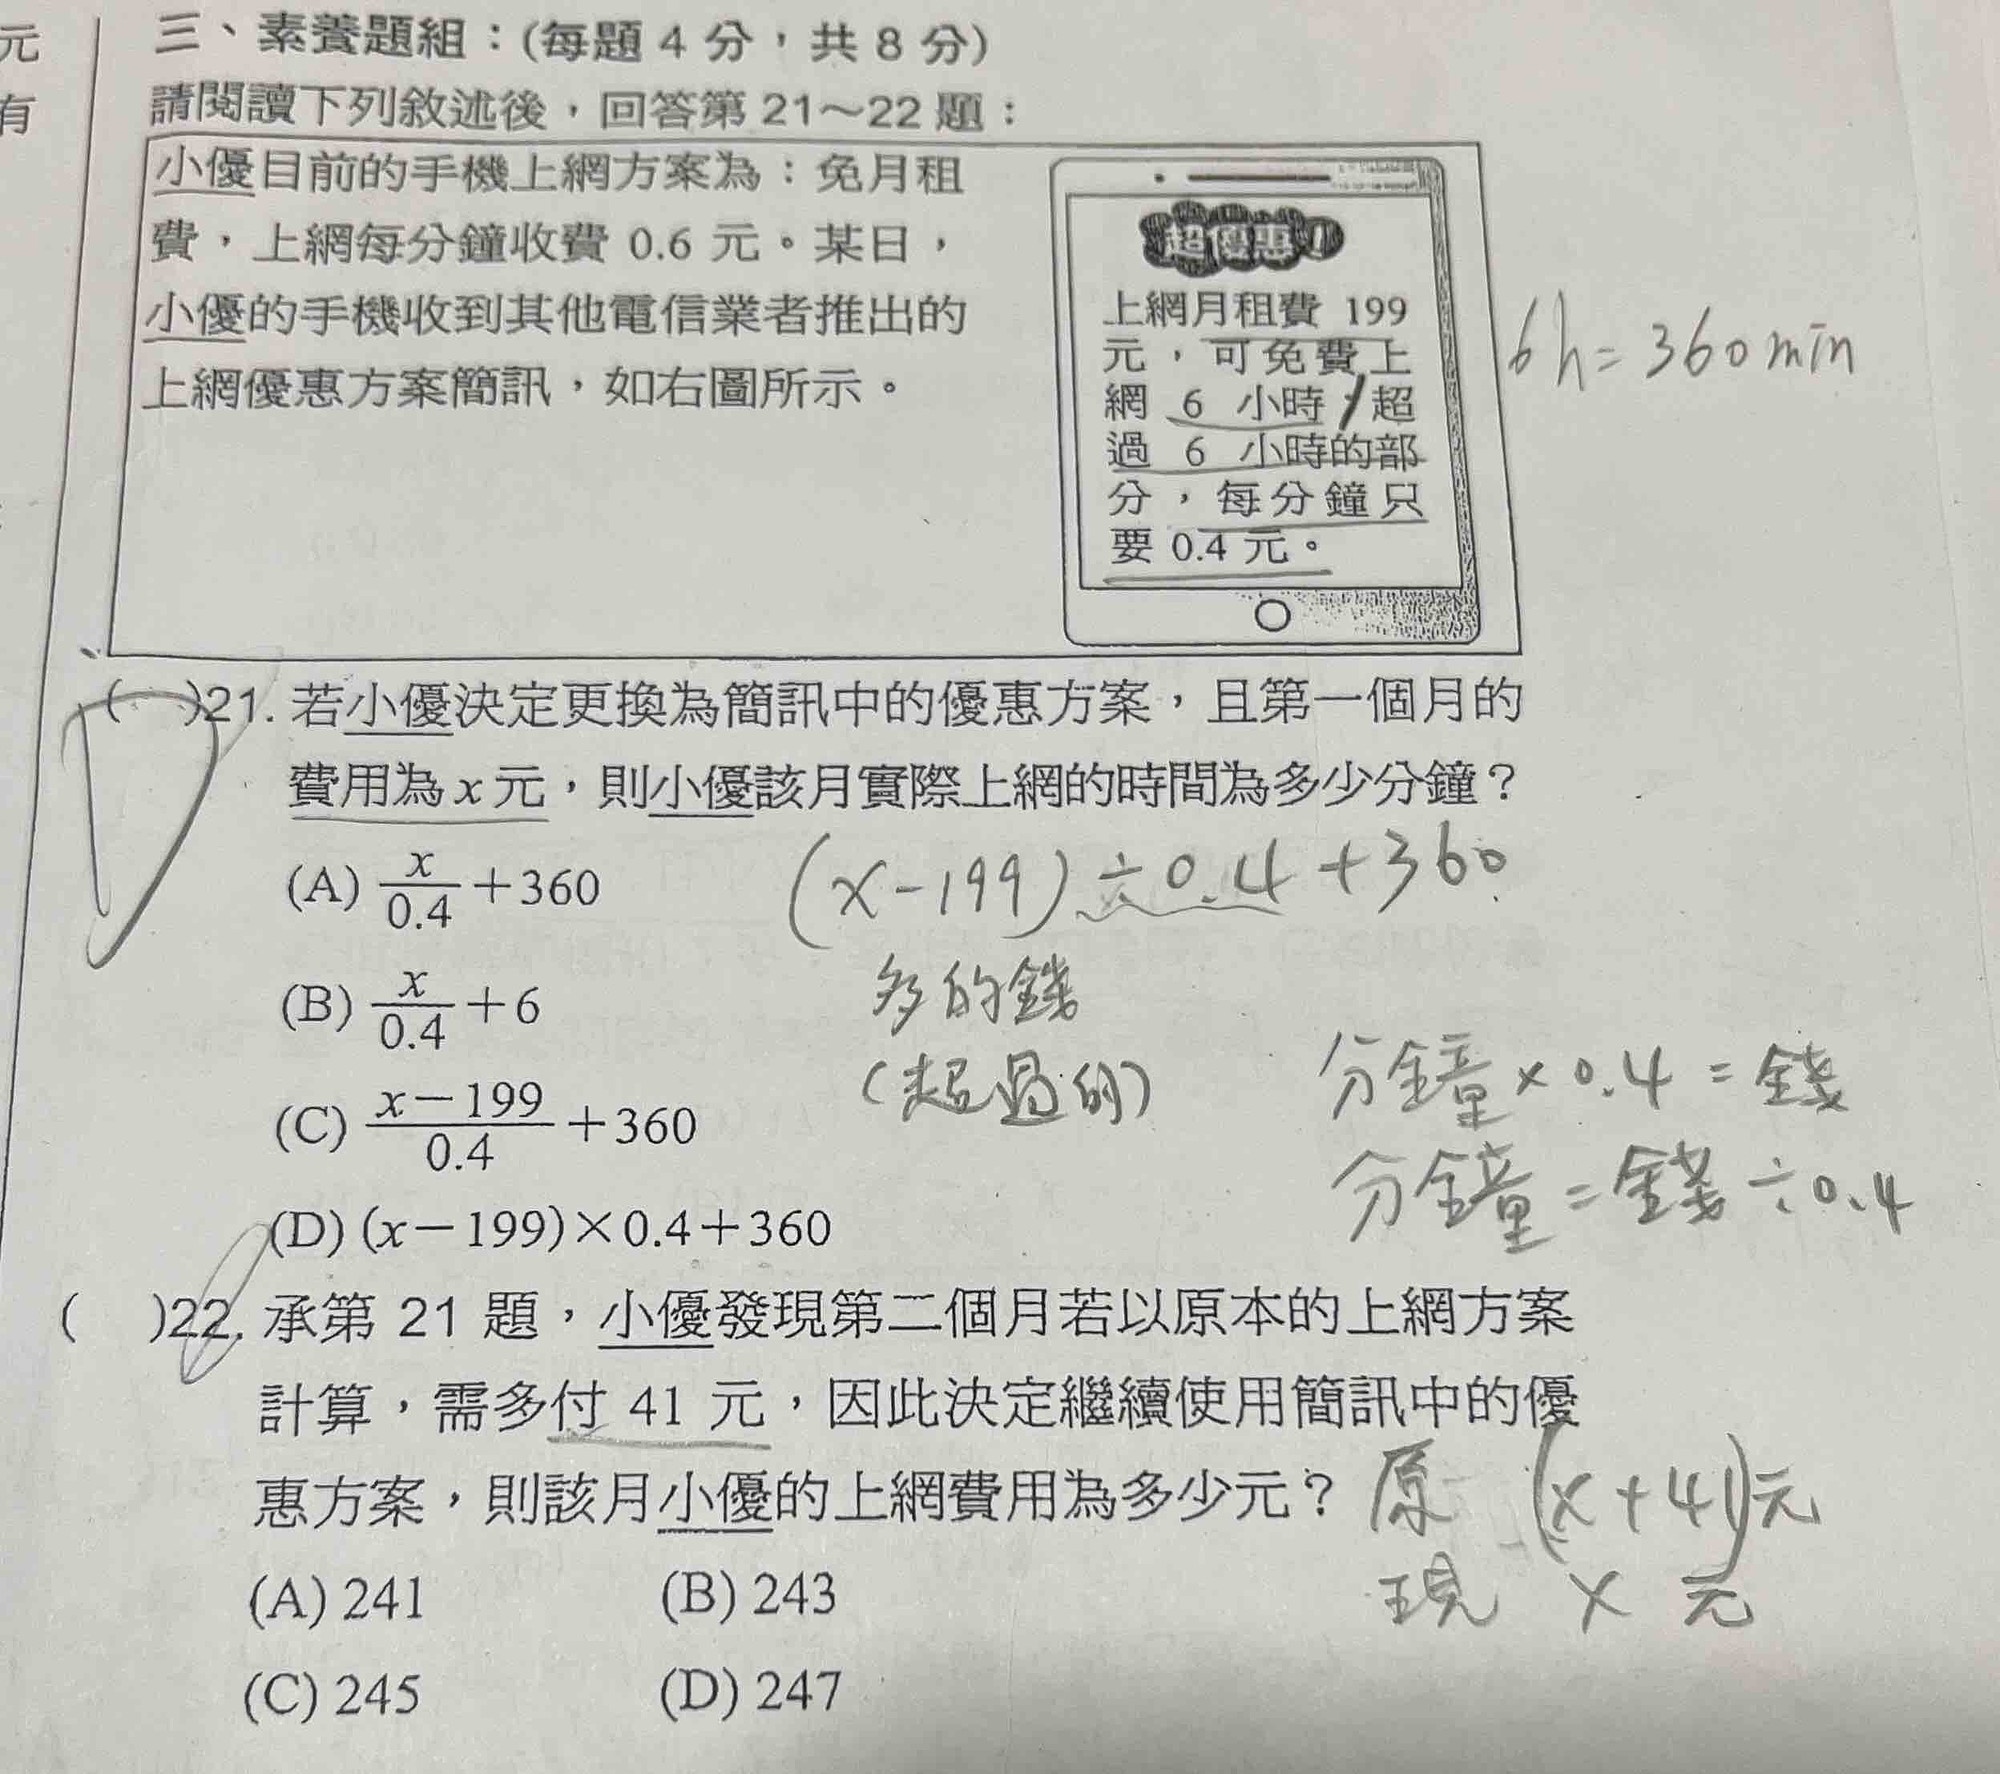 元
有
三、素養題組：(每題 4 分，共 8 分)
請閱讀下列敘述後，回答第 21～22 題：
小優目前的手機上網方案為：免月租
費，上網每分鐘收費 0.6 元。某日，
小優的手機收到其他電信業者推出的
上網優惠方案簡訊，如右圖所示。
超優惠!
上網月租費 199
元，可免費上
網 6 小時，超
過 6 小時的部
分，每分鐘只
要 0.4 元。
6h = 360 min
( )21. 若小優決定更換為簡訊中的優惠方案，且第一個月的
費用為 x 元，則小優該月實際上網的時間為多少分鐘？
(A) x/0.4 ＋360
(x-199)÷0.4+360
(B) x/0.4 ＋6
多的錢
(超過的)
(C) x－199/0.4 ＋360
分鐘×0.4=錢
分鐘=錢÷0.4
(D) (x－199)×0.4＋360
( )22. 承第 21 題，小優發現第二個月若以原本的上網方案
計算，需多付 41 元，因此決定繼續使用簡訊中的優
惠方案，則該月小優的上網費用為多少元？
原 (x+41)元
現 x 元
(A) 241 (B) 243
(C) 245 (D) 247